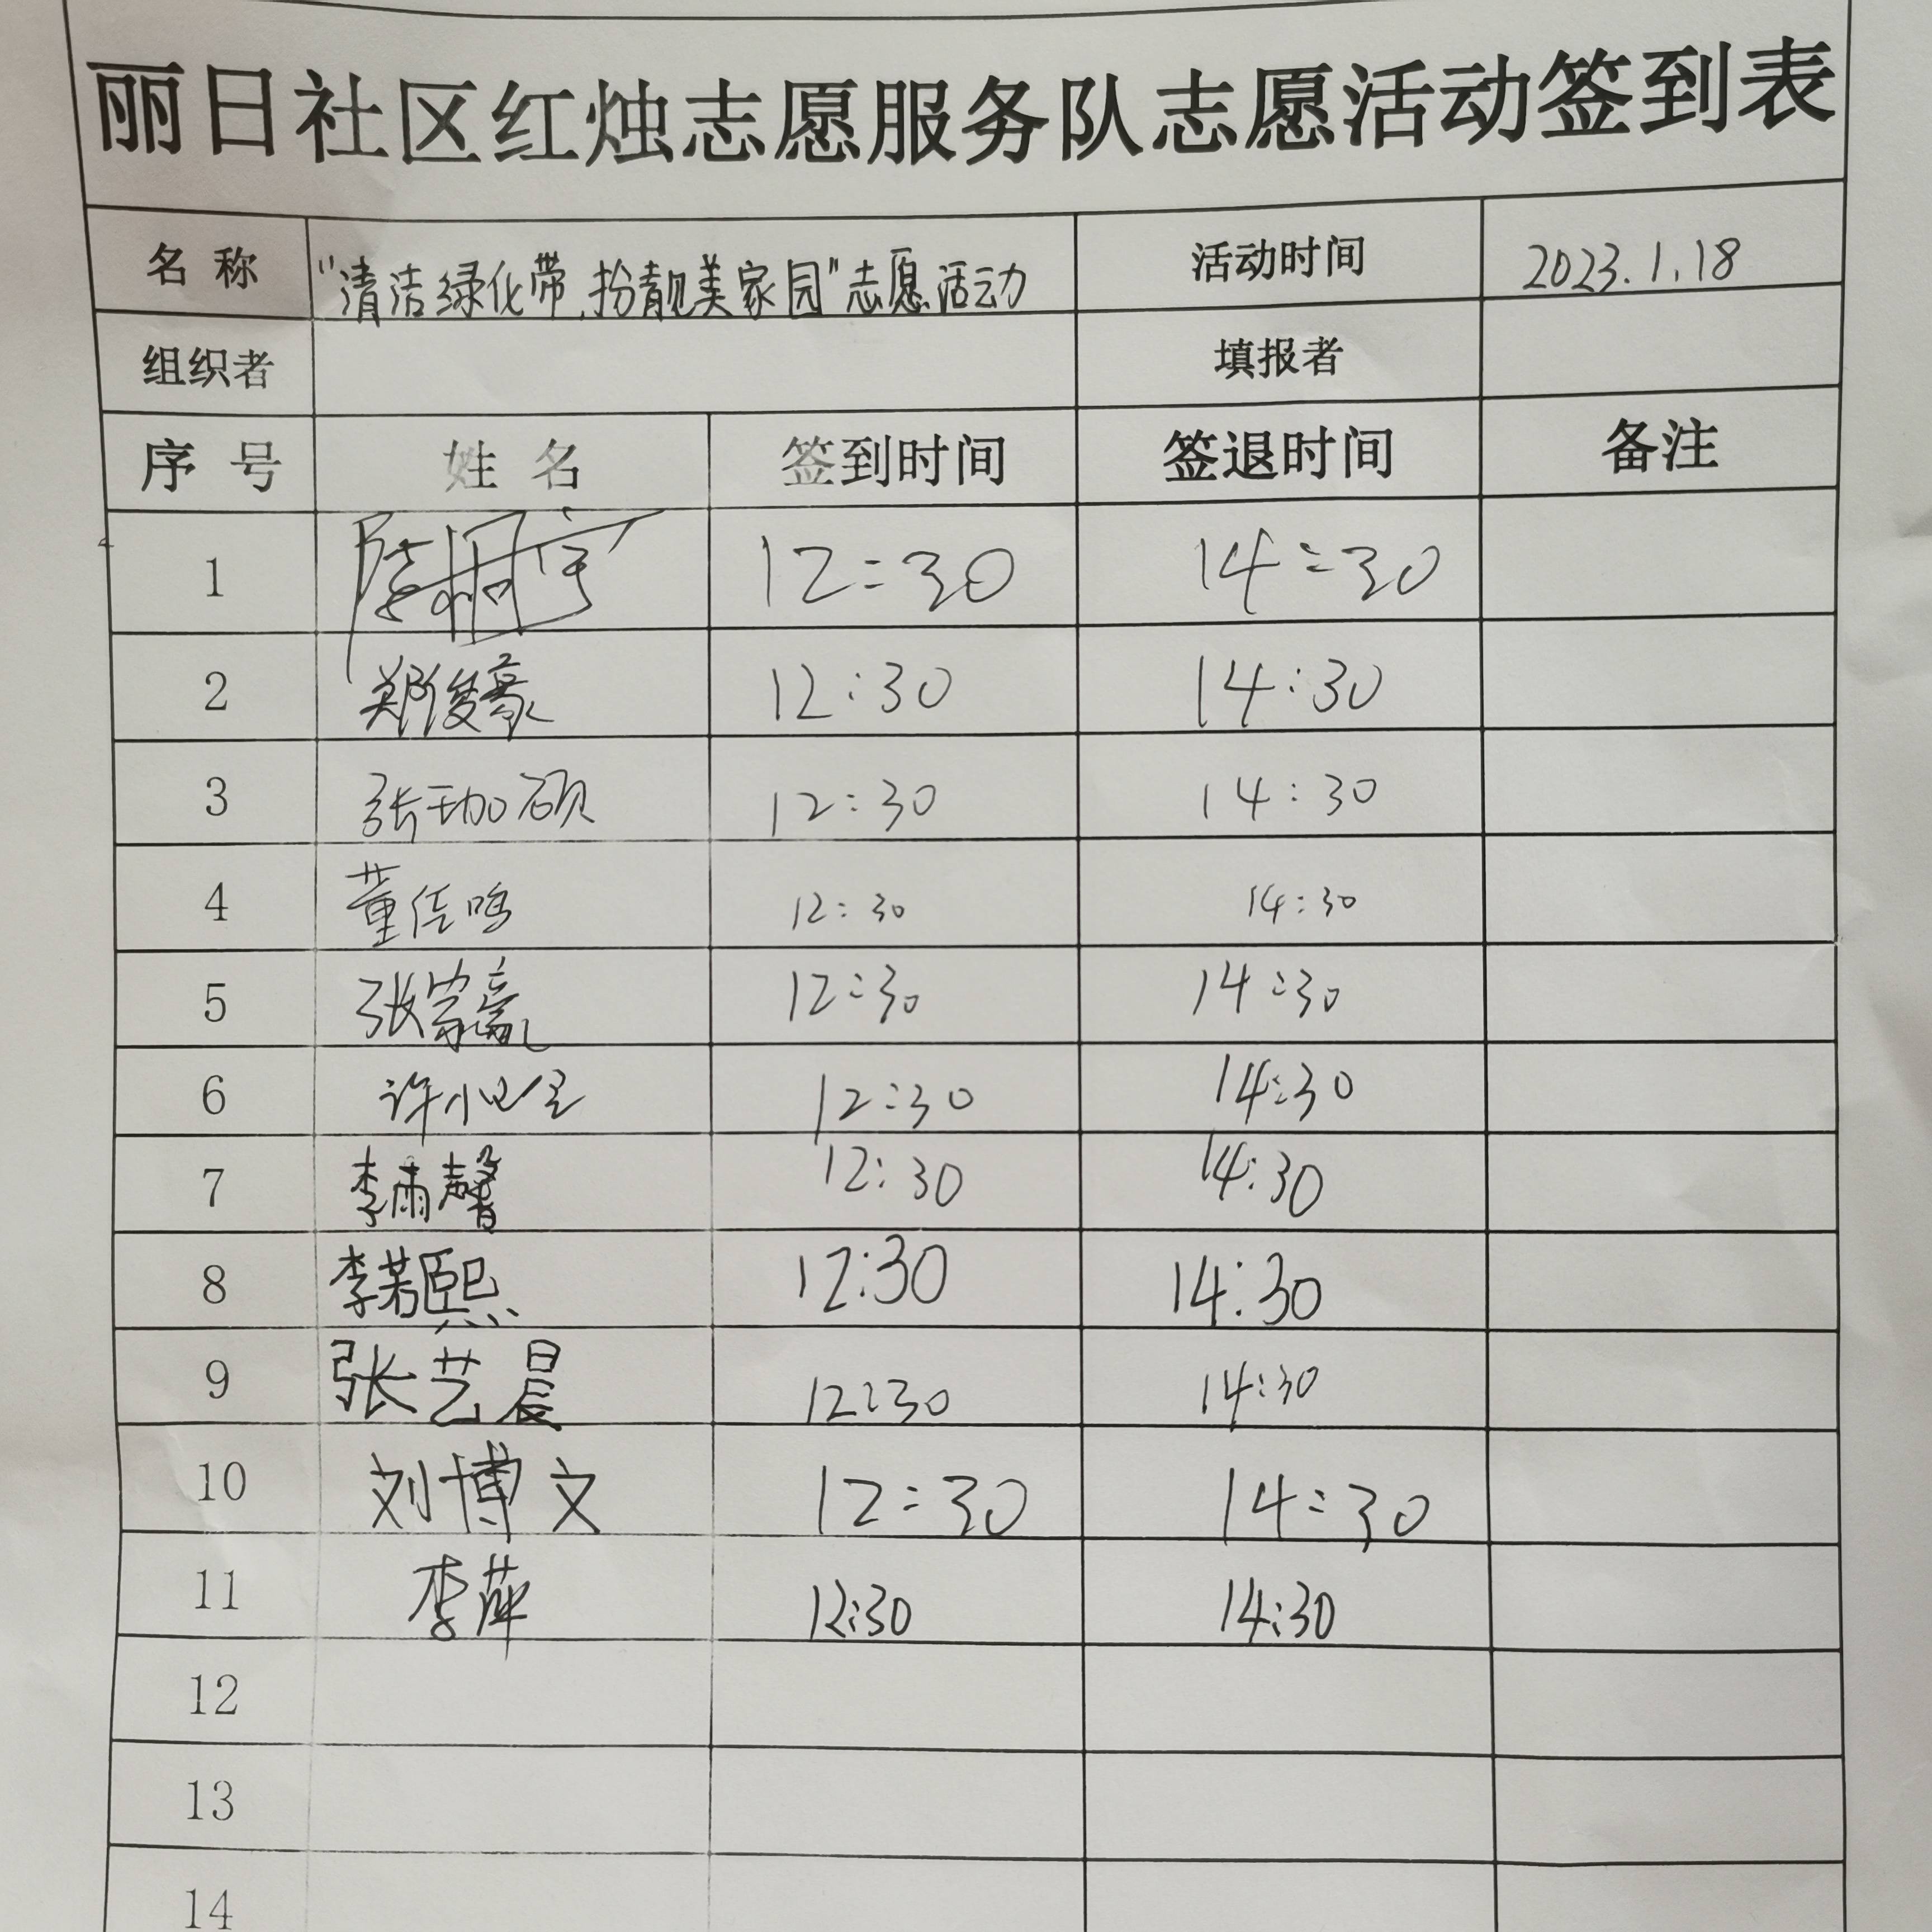 丽日社区红烛志愿服务队志愿活动签到表
名 称 "清洁绿化带,扮靓美家园"志愿活动 活动时间 2023.1.18
组织者 填报者
序 号 姓 名 签到时间 签退时间 备注
1 12:30 14:30
2 郑俊豪 12:30 14:30
3 张珈硕 12:30 14:30
4 董佳鸣 12:30 14:30
5 张 12:30 14:30
6 许 12:30 14:30
7 李雨馨 12:30 14:30
8 李若熙 12:30 14:30
9 张艺晨 12:30 14:30
10 刘博文 12:30 14:30
11 李萍 12:30 14:30
12
13
14